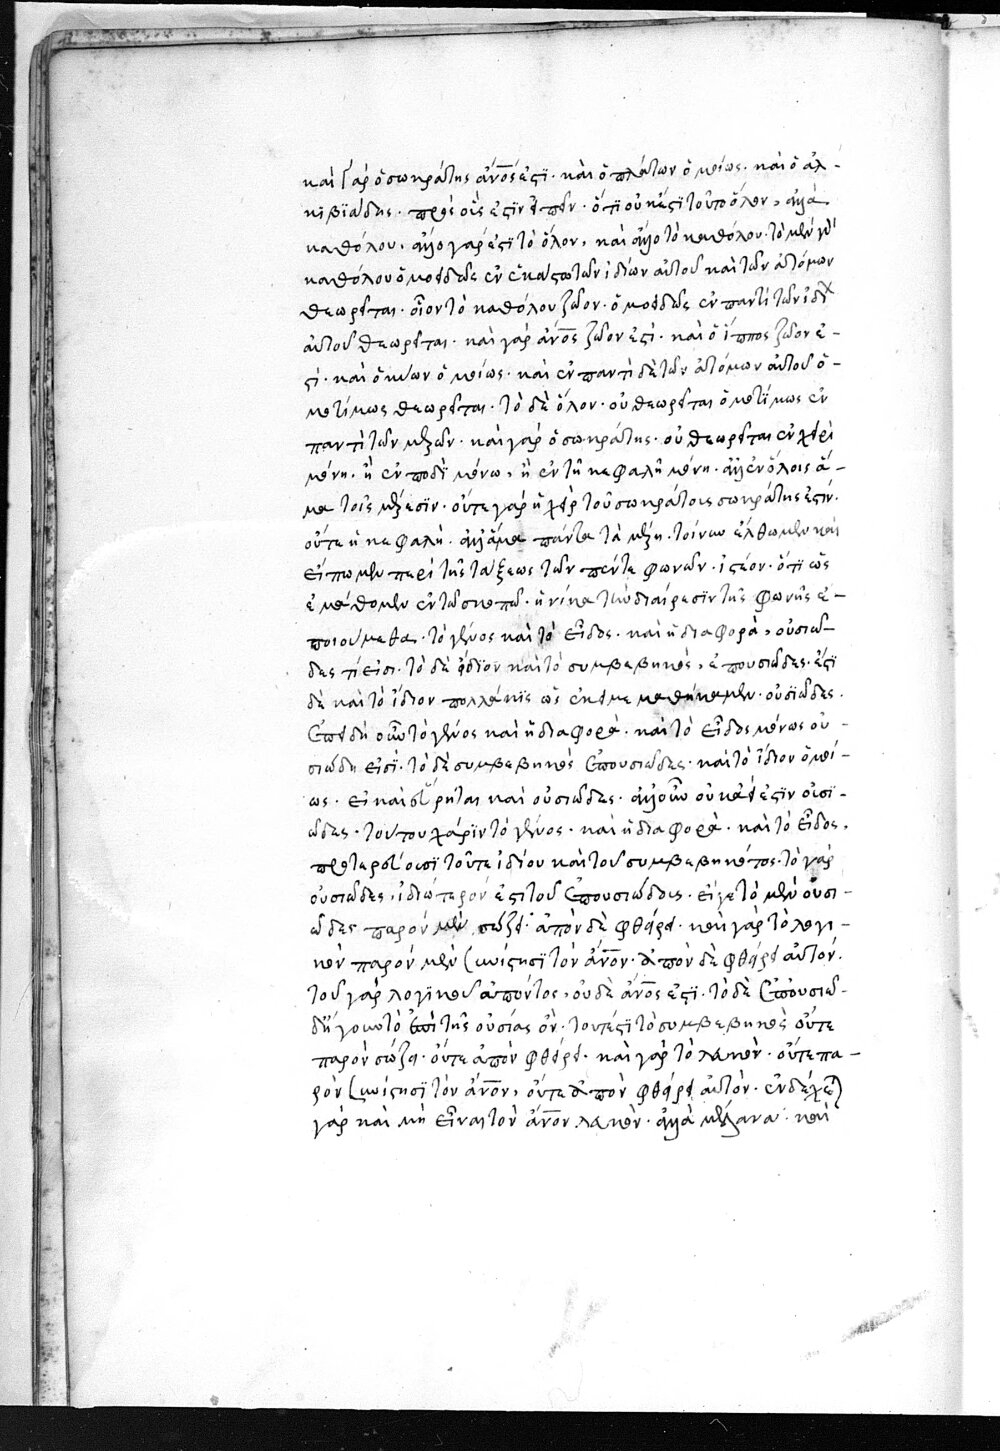 καὶ γὰρ ὁ σωκράτης ἄνος ἐστι· καὶ ὁ πλάτων ὁμοίως· καὶ ὁ ἀλ-
κιβϊάδης· πρὸς οὓς ἐστὶν εἰπεῖν· ὅτι οὐκ ἔστι τοῦτο ὅλον, ἀλλὰ
καθόλου, ἄλλο γάρ ἐστι τὸ ὅλον, καὶ ἄλλο τὸ καθόλου· τὸ μὲν γὰρ
καθόλου ὁμοειδῶς ἐν ἑκάστω τῶν ἰδίων αὐτοῦ καὶ τῶν ἀτόμων
θεωρεῖται· οἷον τὸ καθόλου ζῶον· ὁμοειδῶς ἐν παντὶ τῶν εἰδῶν
αὐτοῦ θεωρεῖται· καὶ γὰρ ἄνος ζῶον ἐστὶ· καὶ ὁ ἵππος ζῶον ἐ-
στὶ· καὶ ὁ κύων ὁμοίως· καὶ ἐν παντὶ δὲ τῶν ἀτόμων αὐτοῦ ὁ-
μοτίμως θεωρεῖται· τὸ δὲ ὅλον· οὐ θεωρεῖται ὁμοτίμως ἐν
παντὶ τῶν μερῶν· καὶ γὰρ ὁ σωκράτης· οὐ θεωρεῖται ἐν χειρὶ
μόνη· ἢ ἐν ποδὶ μόνω, ἢ ἐν τῆ κεφαλῆ μόνη· ἀλλ' ἐν ὅλοις ἅ-
μα τοῖς μέρεσϊν· οὔτε γὰρ ἡ χεὶρ τοῦ σωκράτους σωκράτης ἐστίν·
οὔτε ἡ κεφαλὴ· ἀλλ' ἅμα πάντα τὰ μέρη· τοίνυν ἔλθωμεν καὶ
εἴπωμεν περὶ τῆς τάξεως τῶν πέντε φωνῶν· ἰστέον· ὅτι ὡς
ἐμάθομεν ἐν τῶ σκοπῶ· ἡνίκα τὴν διαίρεσϊν τῆς φωνῆς ἐ-
ποιούμεθα· τὸ γένος καὶ τὸ εἶδος· καὶ ἡ διαφορὰ, οὐσιώ-
δες τί εἰσι· τὸ δὲ ἴδϊον καὶ τὸ συμβεβηκὸς, ἐπουσιώδες· ἔστι
δὲ καὶ τὸ ἴδιον πολλάκις ὡς ἐκεῖ μεμαθήκαμεν· οὐσϊώδες·
ἐπειδὴ οὖν τὸ γένος καὶ ἡ διαφορὰ· καὶ τὸ εἶδος μόνως οὐ-
σιώδη εἰσὶ· τὸ δὲ συμβεβηκὸς ἐπουσιώδες· καὶ τὸ ἴδιον ὁμοί-
ως· εἰ καὶ εἴρηται καὶ οὐσιώδες· ἀλλ' οὖν οὐκ ἀεί ἐστϊν οὐσϊ-
ώδες· τούτου χάρϊν τὸ γένος· καὶ ἡ διαφορὰ· καὶ τὸ εἶδος,
πρότερον οὐσϊ τοῦτε ἰδίου καὶ τοῦ συμβεβηκότος· τὸ γὰρ
οὐσιώδες, ἰδιώτερον ἐστι τοῦ ἐπουσιώδους· εἴγε τὸ μὲν οὐσι-
ώδες παρὸν μὲν σώζει· ἀπὸν δὲ φθείρει· καὶ γὰρ τὸ λογι-
κὸν παρὸν μὲν συνίστησϊ τὸν ἄνον· ἀπὸν δὲ φθείρει αὐτόν·
τοῦ γὰρ λογϊκοῦ ἀπόντος, οὐδὲ ἄνος ἐστϊ· τὸ δὲ ἐπουσιῶ-
δη ἤγουν τὸ ἐπὶ τῆς οὐσίας ὂν· τουτέστϊ τὸ συμβεβηκὸς οὔτε
παρὸν σώζει· οὔτε ἀπὸν φθείρει· καὶ γὰρ τὸ λευκὸν· οὔτε πα-
ρὸν συνίστησϊ τὸν ἄνον, οὔτε ἀπὸν φθείρει αὐτὸν· ἐνδέχεται
γὰρ καὶ μὴ εἶναι τὸν ἄνον λευκὸν· ἀλλὰ μέλανα· καὶ